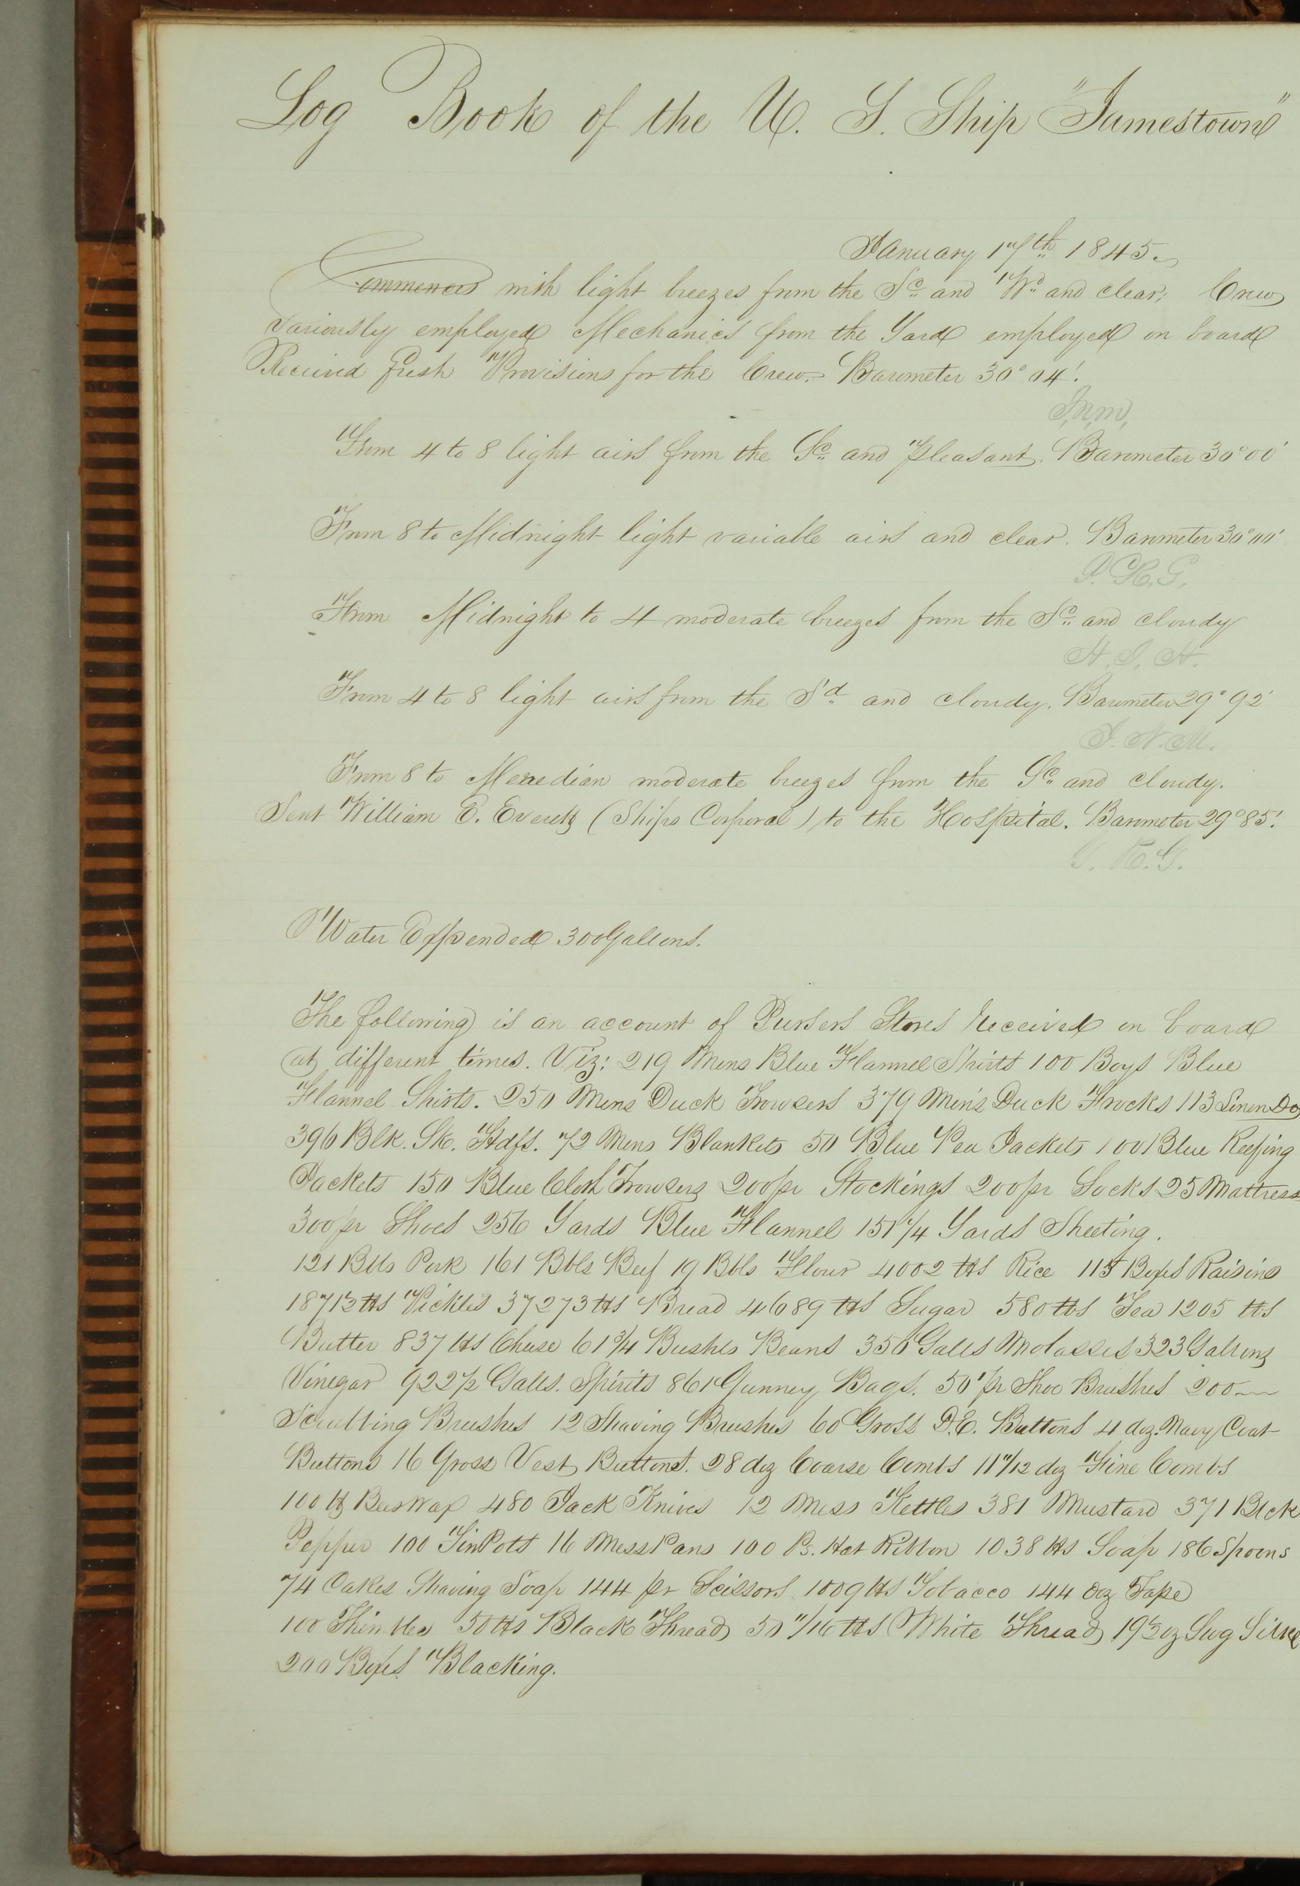 Log Book of the U. S. Ship "Jamestown"
January 17th 1845.
Commences with light breezes from the Sd and Wd and clear; Crew
variously employed Mechanics from the Yard employed on board
Received fresh Provisions for the Crew. Barometer 30° 04'.
J.N.M.
From 4 to 8 light airs from the Sd and pleasant. Barometer 30° 00'
From 8 to Midnight light variable airs and clear. Barometer 30° 00'
H.G.
From Midnight to 4 moderate breezes from the Sd and cloudy
From 4 to 8 light airs from the Sd and cloudy. Barometer 29° 92'
J.N.M.
From 8 to Meredian moderate breezes from the Sd and cloudy.
Sent William E. (Ships Corporal) to the Hospital. Barometer 29° 85'.
Water Expended 300 Gallons.
The following is an account of Pursers Stores received on board
at different times. Viz: 219 Mens Blue Flannel Shirts 100 Boys Blue
Flannel Shirts. 250 Mens Duck Trowsers 379 Men's Duck Frocks 113 Linen Do
396 Blk. Sk. Hdfs. 72 Mens Blankets 50 Blue Pea Jackets 100 Blue Reefing
Jackets 150 Blue Cloth Trowsers 200 pr Stockings 200 pr Socks 25 Mattress
300 pr Shoes 256 Yards Blue Flannel 151 1/4 Yards Sheeting.
121 Bbls Pork 161 Bbls Beef 19 Bbls Flour 4002 lbs Rice 115 Boxes Raisins
1871 1/2 lbs Pickles 37273 lbs Bread 4689 lbs Sugar 580 lbs Tea 1205 lbs
Butter 837 lbs Cheese 61 3/4 Bushls Beans 350 Galls Molasses 323 Gallons
Vinegar 922 1/2 Galls. Spirits 861 Gunney Bags. 50 pr Shoe Brushes 200
Scrubbing Brushes 12 Shaving Brushes 60 Gross D.E. Buttons 4 doz. Navy Coat
Buttons 16 Gross Vest Buttons. 28 doz Coarse Combs 11 7/12 doz Fine Combs
100 lb Beeswax 480 Jack Knives 12 Mess Kettles 381 Mustard 371 Black
Pepper 100 Tin Pots 16 Mess Pans 100 Ps. Hat Ribbon 1038 lbs Soap 186 Spoons
74 Cakes Shaving Soap 144 pr Scissors 1009 lbs Tobacco 144 doz Tape
100 Thimbles 50 lbs Black Thread 50 11/16 lbs White Thread 19 1/2 oz Swg Silk
200 Boxes Blacking.